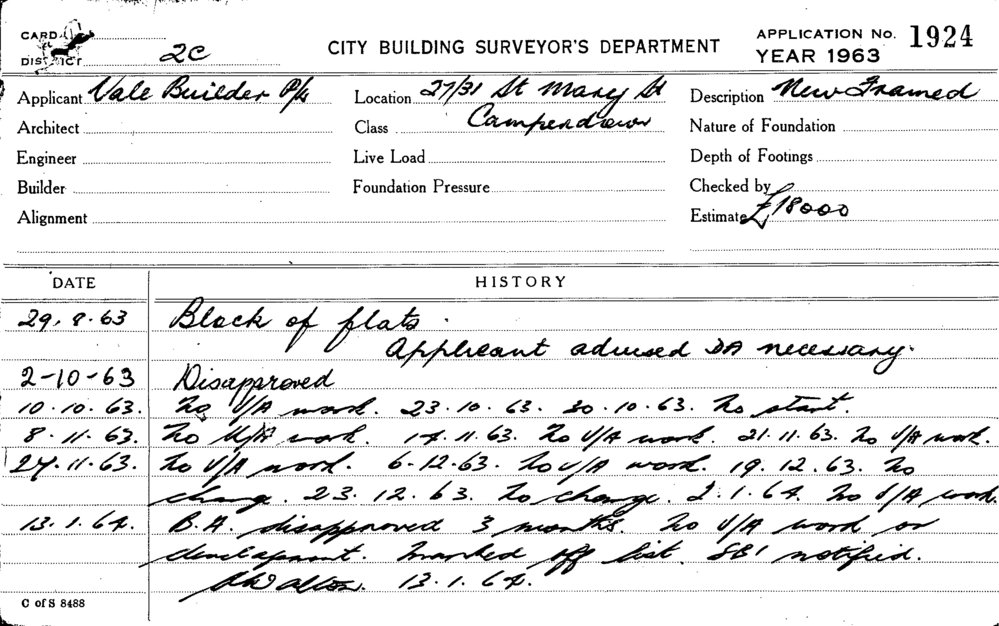 CARD
DISTRICT 2C
CITY BUILDING SURVEYOR'S DEPARTMENT
APPLICATION No. 1924
YEAR 1963
Applicant Vale Builder P/L
Location 27/31 St Mary St
Camperdown
Description New Framed
Architect
Class
Nature of Foundation
Engineer
Live Load
Depth of Footings
Builder
Foundation Pressure
Checked by
Alignment
Estimate £18000
DATE
HISTORY
29.8.63 Block of flats.
Applicant advised DA necessary.
2-10-63 Disapproved
10.10.63. No U/A work. 23.10.63. 30.10.63. No start.
8.11.63. No U/A work. 14.11.63. No U/A work. 21.11.63. No U/A work.
27.11.63. No U/A work. 6-12.63. No U/A work. 19.12.63. No
change. 23.12.63. No change. 2.1.64. No U/A work.
13.1.64. B.A. disapproved 3 months. No U/A work or
development. Marked off list. SBI notified.
Walton. 13.1.64.
C of S 8488